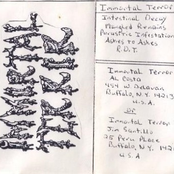 Immortal Terror
Intestinal Decay
Mangled Remains
Parasitic Infestation
Ashes to Ashes
R.D.T.
Immortal Terror
Al Costa
444 W. Delavan
Buffalo, N.Y. 14213
U.S.A.
or
Immortal Terror
Jim Santillo
28 Peru Place
Buffalo, N.Y. 142
U.S.A